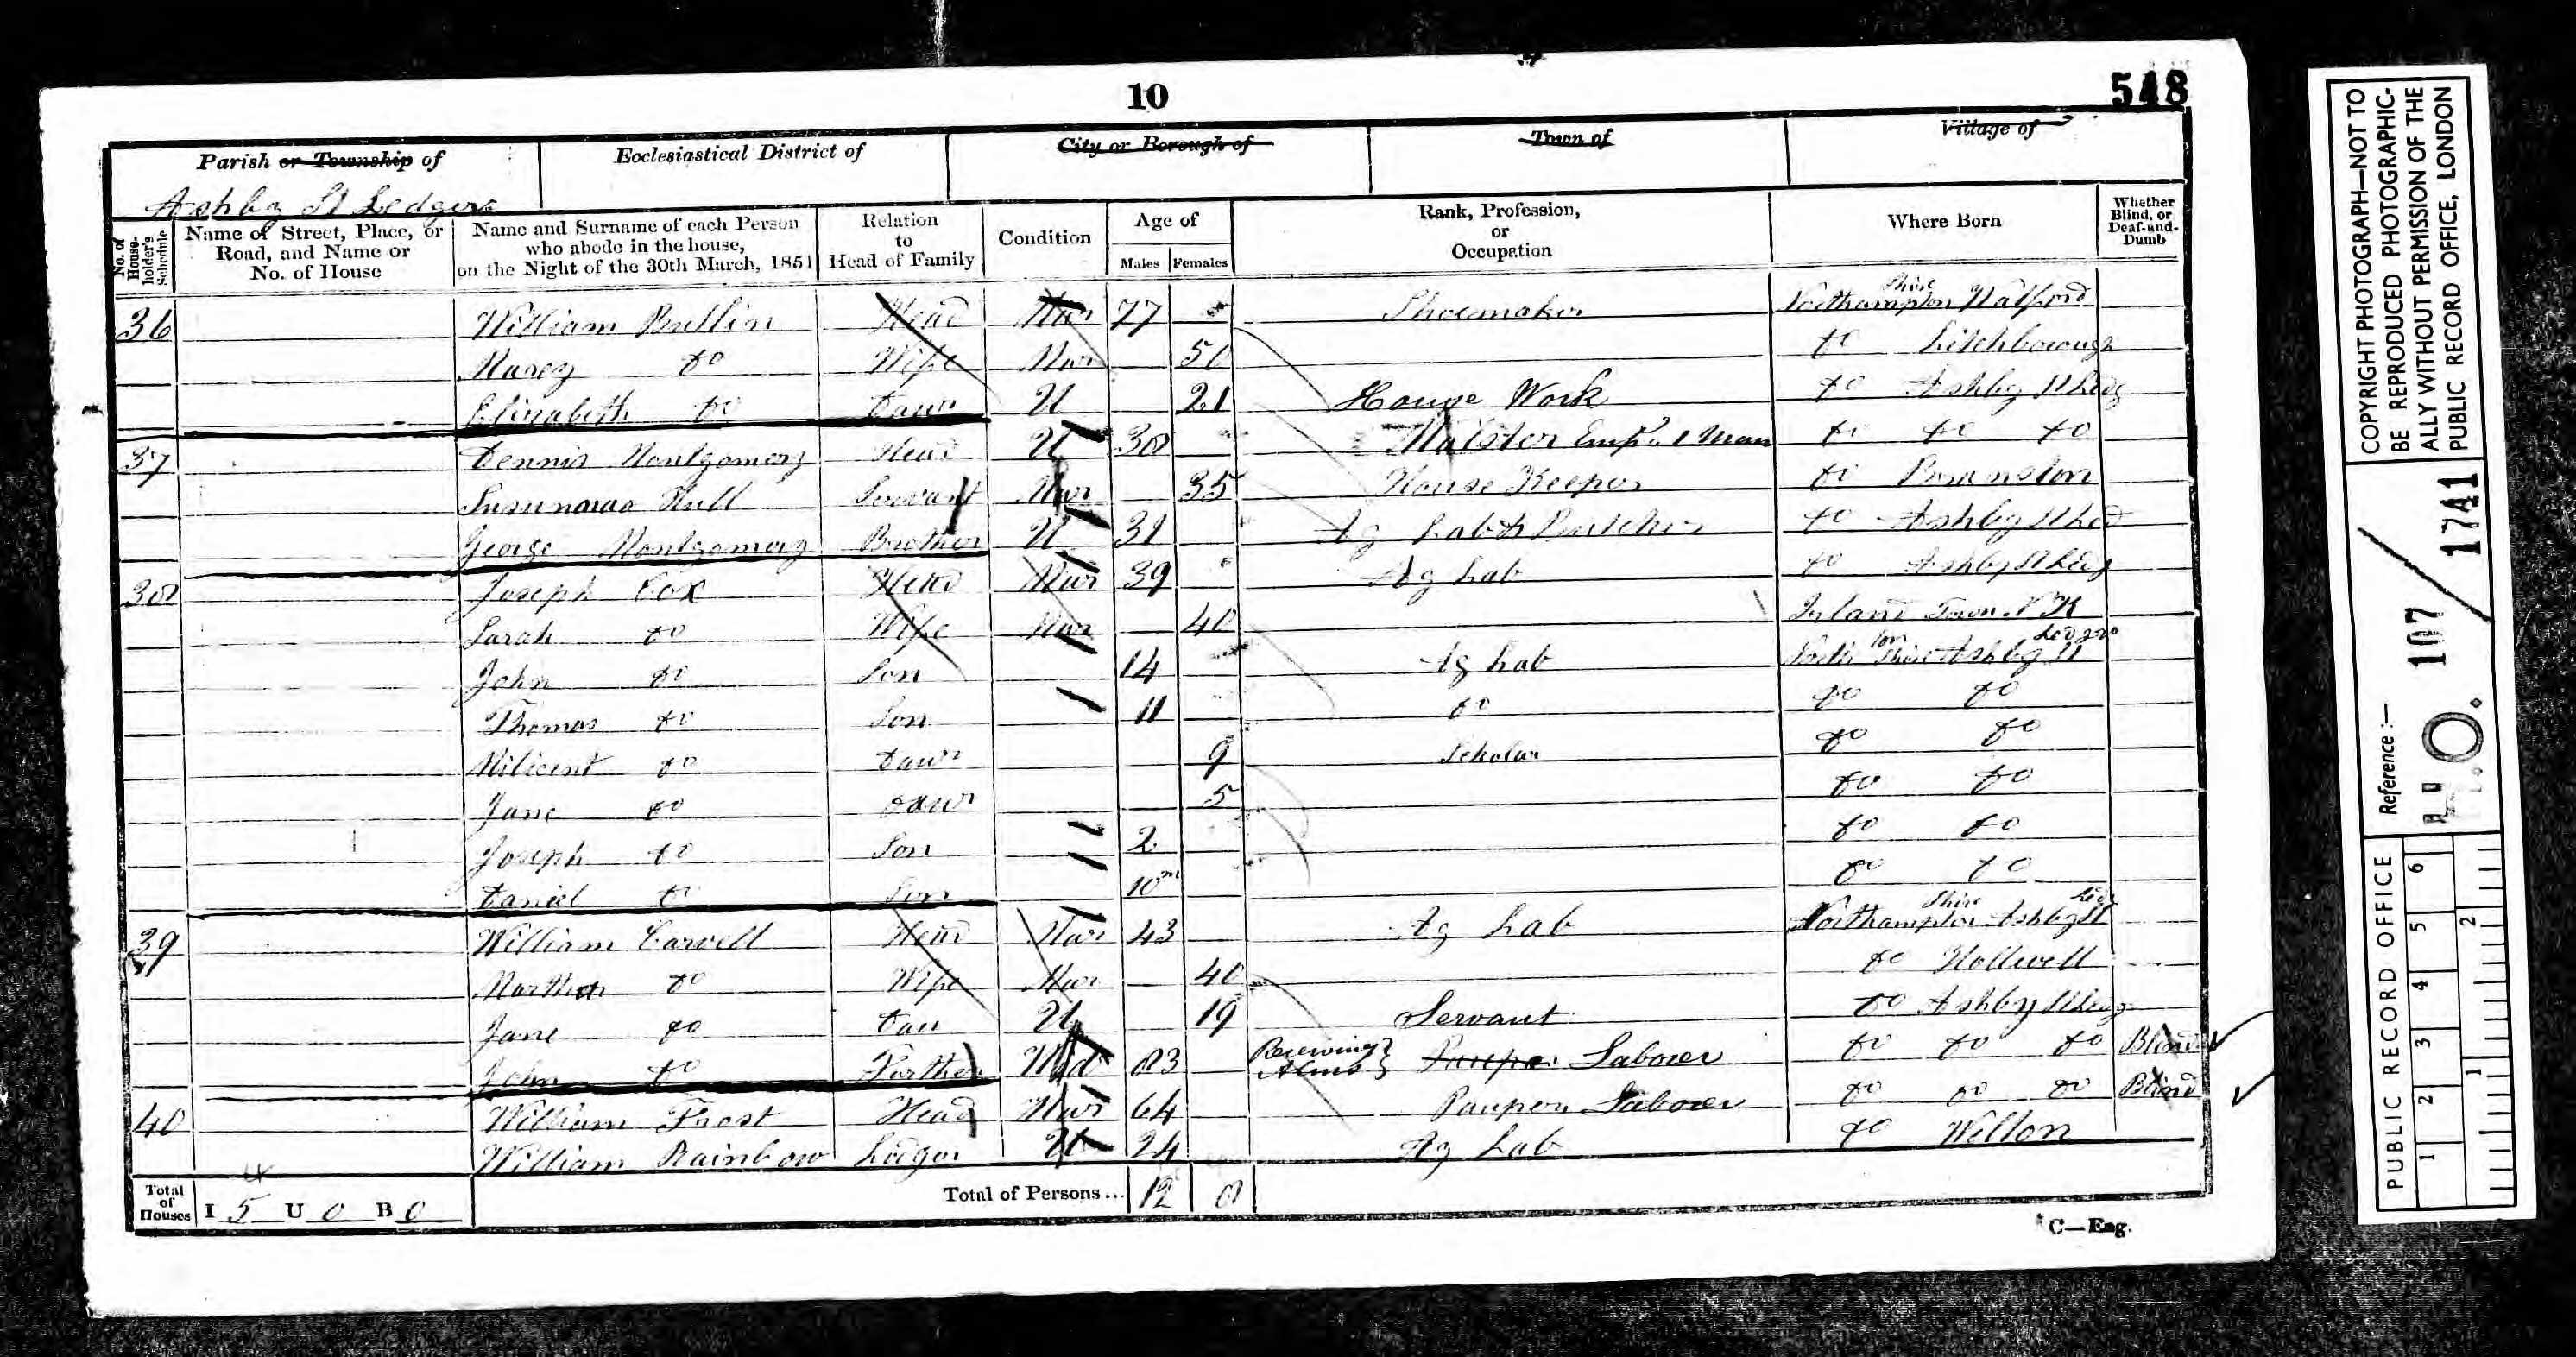 10
548
Parish or Township of
Ecclesiastical District of
City or Borough of
Town of
Village of
Ashby St Ledgers
No. of House-holder's Schedule
Name of Street, Place, or Road, and Name or No. of House
Name and Surname of each Person who abode in the house, on the Night of the 30th March, 1851
Relation to Head of Family
Condition
Age of
Males Females
Rank, Profession, or Occupation
Where Born
Whether Blind, or Deaf-and-Dumb
36 William Bullin Head Mar 77 Shoemaker Northampton Shire Watford
Do Wife Mar 50 Do Litchborough
Elizabeth Do Daur U 21 House Work Do Ashby St Ledg
37 Dennis Montgomery Head U 38 Malster Emp. 1 Man Do Do Do
Hull Servant Mar 35 House Keeper Do Braunston
George Montgomery Brother U 31 Ag Lab & Butcher Do Ashby St Led
38 Joseph Cox Head Mar 39 Ag Lab Do Ashby St Ledg
Sarah Do Wife Mar 40
John Do Son 14 Ag Lab North ton Shire Ashby St Ledgers
Thomas Do Son 11 Do Do Do
Milicent Do Daur 9 Scholar Do Do
Jane Do Daur 5 Do Do
Joseph Do Son 2 Do Do
Daniel Do Son 10m Do Do
39 William Carvell Head Mar 43 Ag Lab Northampton Shire Ashby St Led
Martha Do Wife Mar 40 Do Hollwell
Jane Do Dau U 19 Servant Do Ashby St Ledg
John Do Farther Wid 83 Receiving Alms Pauper Laborer Do Do Do Blind
40 William Frost Head Mar 64 Pauper Laborer Do Do Do Blind
William Rainbow Lodger U 24 Ag Lab Do Welton
Total of Houses I 5 U 0 B 0
4
Total of Persons... 12 8
C—Eng.
COPYRIGHT PHOTOGRAPH—NOT TO
BE REPRODUCED PHOTOGRAPHIC-
ALLY WITHOUT PERMISSION OF THE
PUBLIC RECORD OFFICE, LONDON
Reference:—
H.O. 107 / 1741
PUBLIC RECORD OFFICE
1 2 3 4 5 6
1 2